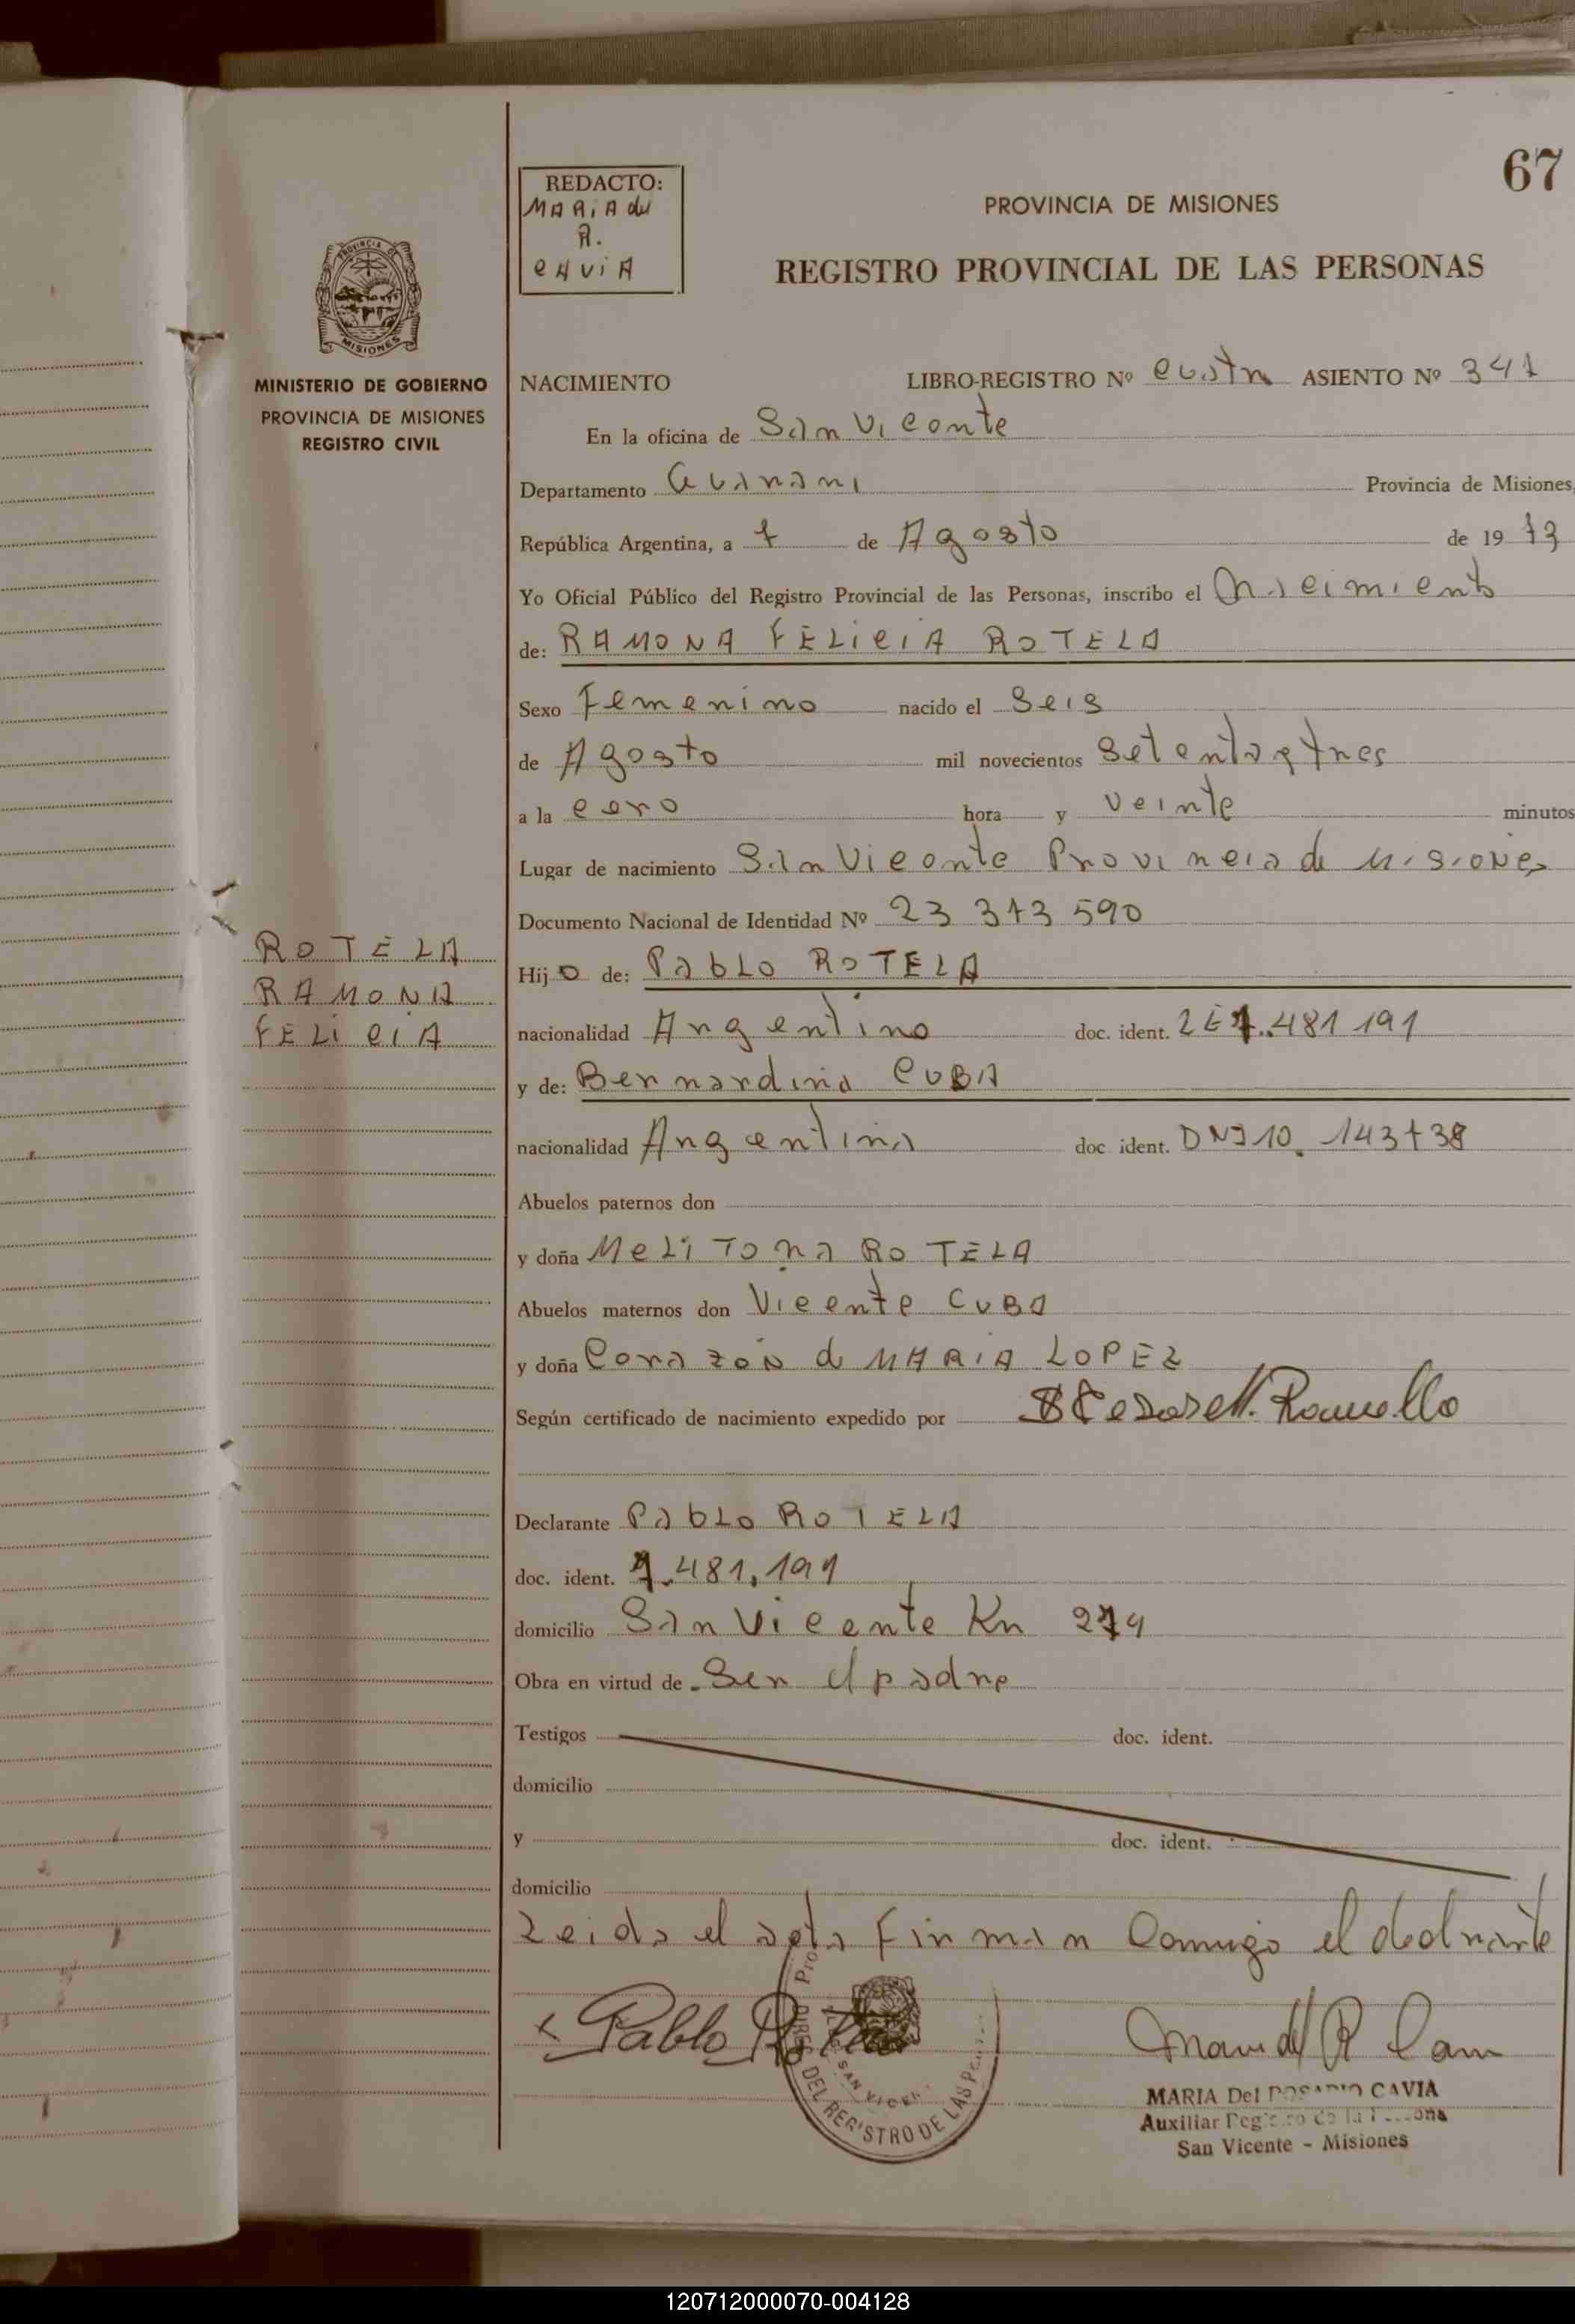 67
REDACTO:
MARIA del
R.
CAVIA
PROVINCIA DE MISIONES
REGISTRO PROVINCIAL DE LAS PERSONAS
PROVINCIA DE MISIONES
MINISTERIO DE GOBIERNO
PROVINCIA DE MISIONES
REGISTRO CIVIL
NACIMIENTO LIBRO-REGISTRO Nº cuatro ASIENTO Nº 341
En la oficina de San Vicente
Departamento Guarani Provincia de Misiones,
República Argentina, a 7 de Agosto de 1973
Yo Oficial Público del Registro Provincial de las Personas, inscribo el Nacimiento
de: RAMONA FELICIA ROTELA
Sexo Femenino nacido el Seis
de Agosto mil novecientos Setenta y tres
a la cero hora y veinte minutos
Lugar de nacimiento San Vicente Provincia de MISIONES
Documento Nacional de Identidad Nº 23 373 590
ROTELA
RAMONA
FELICIA
Hijo de: Pablo ROTELA
nacionalidad Argentino doc. ident. LE 7.481 191
y de: Bernardina CUBA
nacionalidad Argentina doc. ident. DNI 10.143738
Abuelos paternos don
y doña MeLiTona ROTELA
Abuelos maternos don Vicente CUBA
y doña Corazón de MARIA LOPEZ
Según certificado de nacimiento expedido por
Declarante Pablo ROTELA
doc. ident. 7.481.191
domicilio San Vicente Km 274
Obra en virtud de Ser el padre
Testigos doc. ident.
domicilio
y doc. ident.
domicilio
Leida el acta Firman Conmigo el declarante
x Pablo Rotela
SAN VICEN
DEL REGISTRO DE LAS PE
MARIA Del ROSARIO CAVIA
Auxiliar
San Vicente - Misiones
120712000070-004128